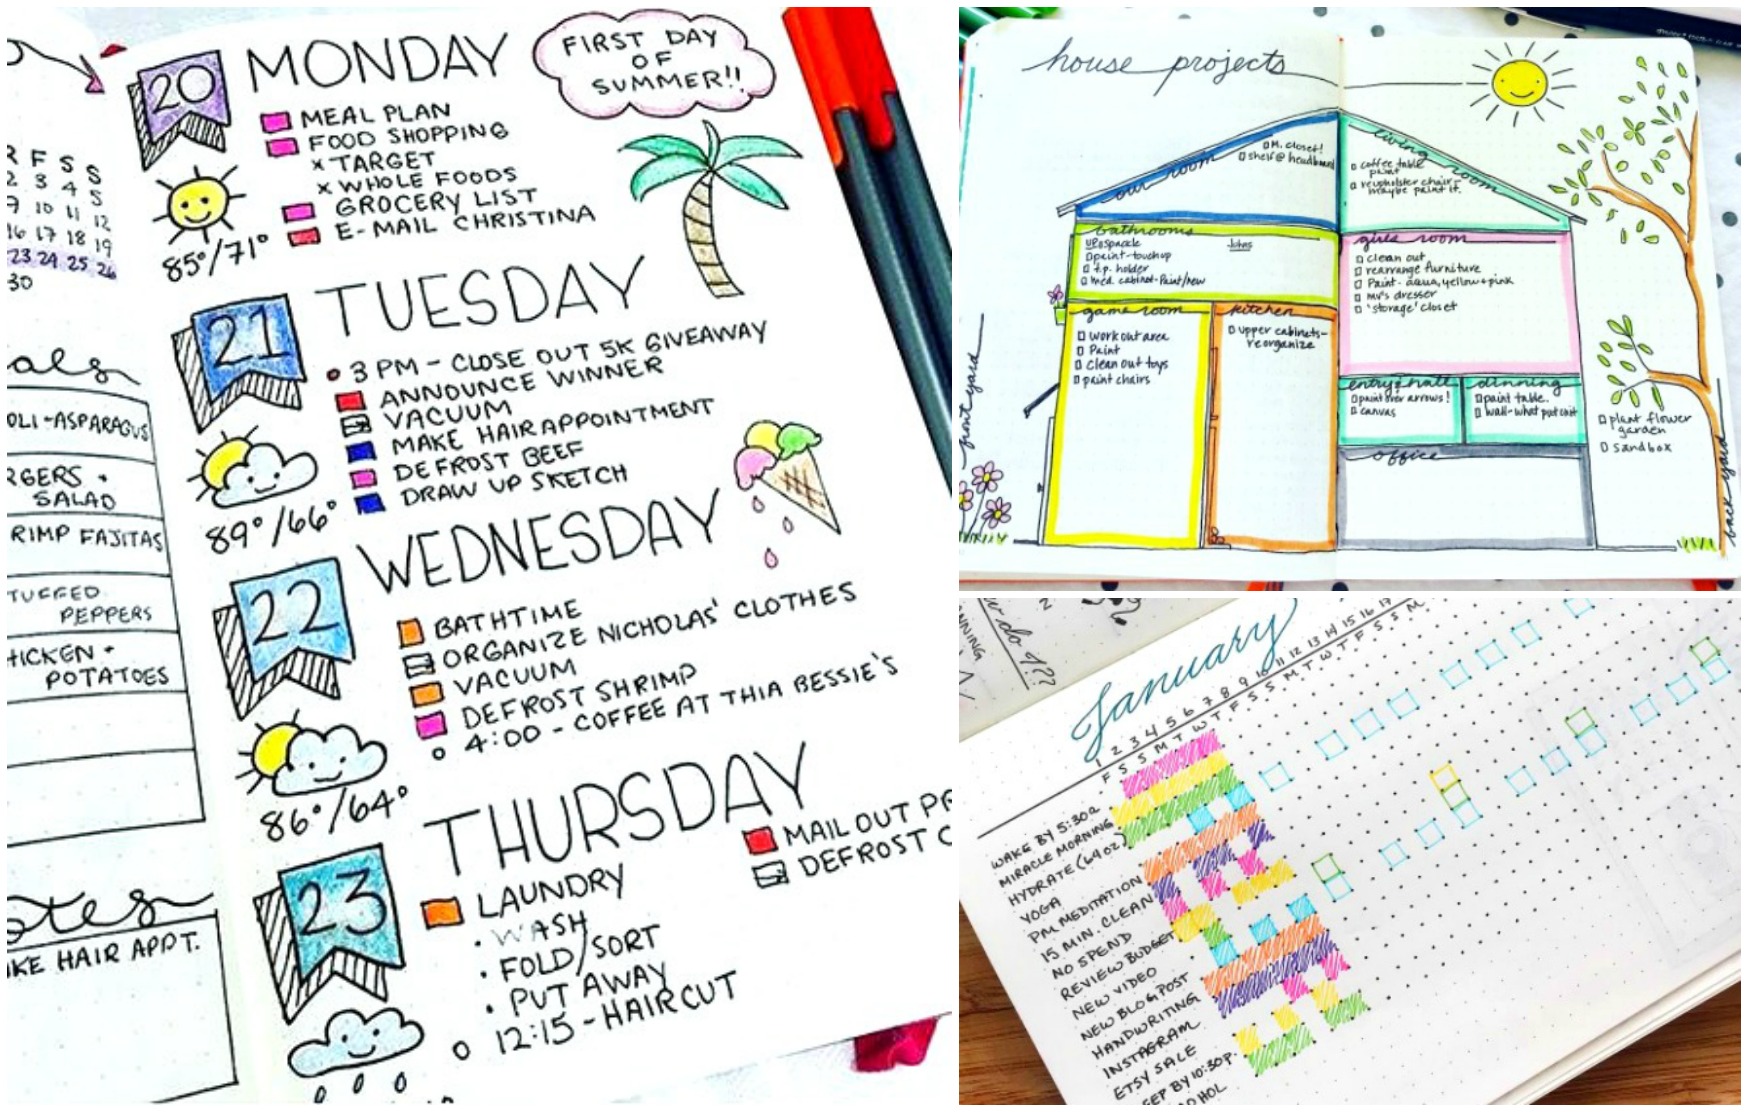 R F S S
2 3 4 5
9 10 11 12
16 17 18 19
23 24 25 26
30
als
OLI-ASPARAGUS
RGERS +
SALAD
RIMP FAJITAS
TUFFED
PEPPERS
HICKEN +
POTATOES
otes
KE HAIR APPT.
20
MONDAY
FIRST DAY
OF
SUMMER!!
MEAL PLAN
FOOD SHOPPING
x TARGET
x WHOLE FOODS
GROCERY LIST
E-MAIL CHRISTINA
85°/71°
21
TUESDAY
3 PM - CLOSE OUT 5K GIVEAWAY
ANNOUNCE WINNER
VACUUM
MAKE HAIR APPOINTMENT
DEFROST BEEF
DRAW UP SKETCH
89°/66°
22
WEDNESDAY
BATHTIME
ORGANIZE NICHOLAS' CLOTHES
VACUUM
DEFROST SHRIMP
4:00 - COFFEE AT THIA BESSIE'S
86°/64°
23
THURSDAY
LAUNDRY
• WASH
• FOLD/SORT
• PUT AWAY
12:15 - HAIRCUT
MAIL OUT PR
DEFROST C
house projects
our room
M. closet!
shelf @ headboard
living room
coffee table
paint
reupholster chair -
maybe paint it.
bathrooms
spackle
paint-touchup
t.p. holder
med. cabinet-Paint/new
girls room
clean out
rearrange furniture
Paint - aqua, yellow + pink
mv's dresser
'storage' closet
game room
work out area
Paint
clean out toys
paint chairs
kitchen
upper cabinets -
reorganize
entry & hall
paint over arrows!
canvas
dinning
paint table..
wall-what put on it
office
front yard
plant flower
garden
sandbox
back yard
January
1 2 3 4 5 6 7 8 9 10 11 12 13 14 15 16 17
F S S M T W T F S S M T W T F S S M
WAKE BY 5:30a
MIRACLE MORNING
HYDRATE (64 oz)
YOGA
PM MEDITATION
15 MIN. CLEAN
NO SPEND
REVIEW BUDGET
NEW VIDEO
NEW BLOG POST
HANDWRITING
INSTAGRAM
ETSY SALE
EEP BY 10:30P.
O HOL